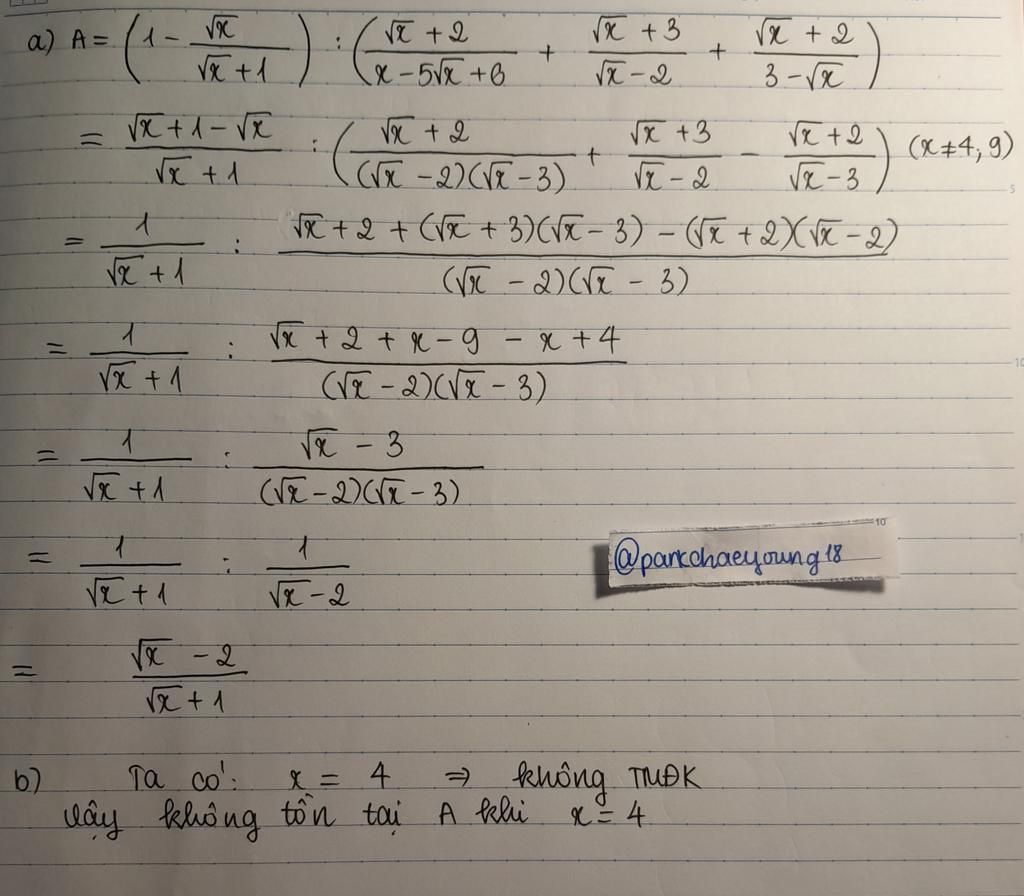 a) A = (1 - √x/(√x + 1)) : ((√x + 2)/(x - 5√x + 6) + (√x + 3)/(√x - 2) + (√x + 2)/(3 - √x))
= (√x + 1 - √x)/(√x + 1) : ((√x + 2)/((√x - 2)(√x - 3)) + (√x + 3)/(√x - 2) - (√x + 2)/(√x - 3)) (x ≠ 4, 9)
= 1/(√x + 1) : (√x + 2 + (√x + 3)(√x - 3) - (√x + 2)(√x - 2))/((√x - 2)(√x - 3))
= 1/(√x + 1) : (√x + 2 + x - 9 - x + 4)/((√x - 2)(√x - 3))
= 1/(√x + 1) : (√x - 3)/((√x - 2)(√x - 3))
= 1/(√x + 1) : 1/(√x - 2)
@parkchaeyoung18
= (√x - 2)/(√x + 1)
b) Ta có: x = 4 ⇒ không TMĐK
Vậy không tồn tại A khi x = 4